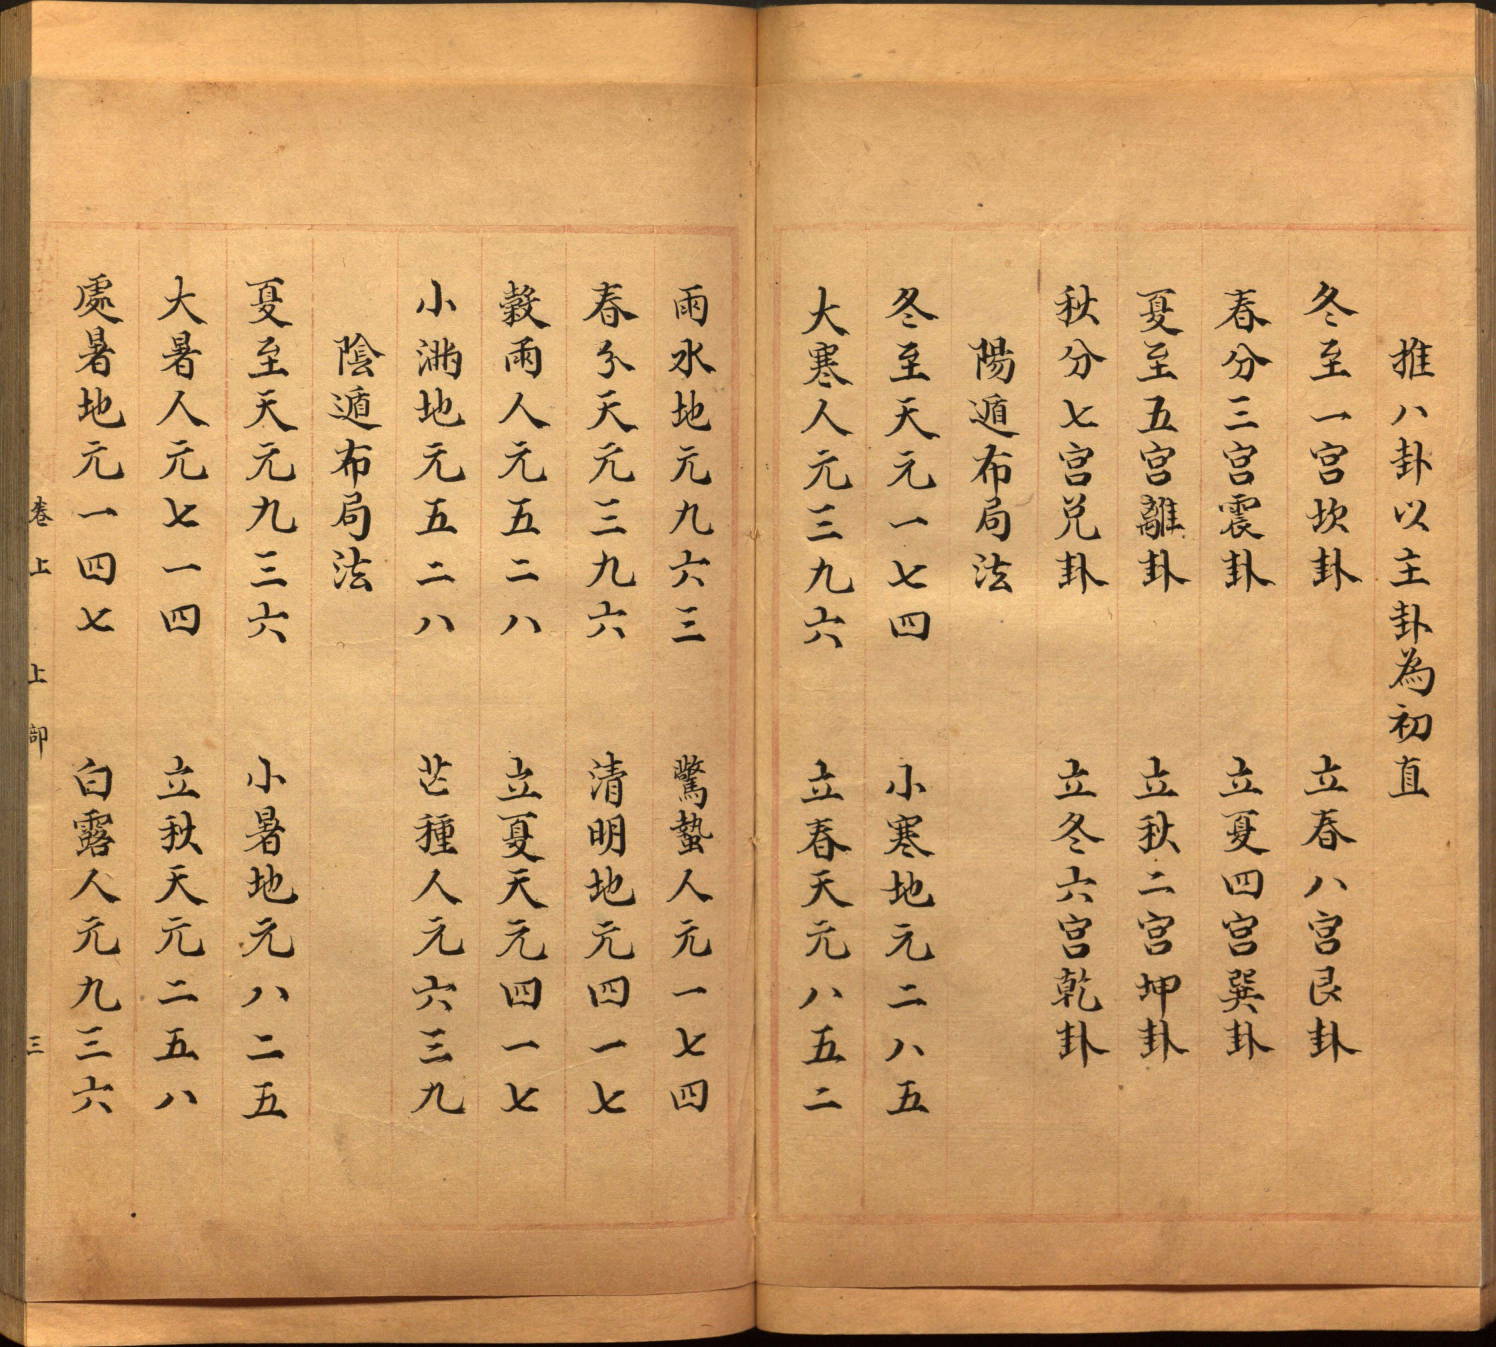 推八卦以主卦為初直
冬至一宮坎卦　立春八宮艮卦
春分三宮震卦　立夏四宮巽卦
夏至五宮離卦　立秋二宮坤卦
秋分七宮兑卦　立冬六宮乾卦
陽遁布局法
冬至天元一七四　小寒地元二八五
大寒人元三九六　立春天元八五二
雨水地元九六三　驚蟄人元一七四
春分天元三九六　清明地元四一七
穀雨人元五二八　立夏天元四一七
小滿地元五二八　芒種人元六三九
陰遁布局法
夏至天元九三六　小暑地元八二五
大暑人元七一四　立秋天元二五八
處暑地元一四七　白露人元九三六
卷上　上部　三